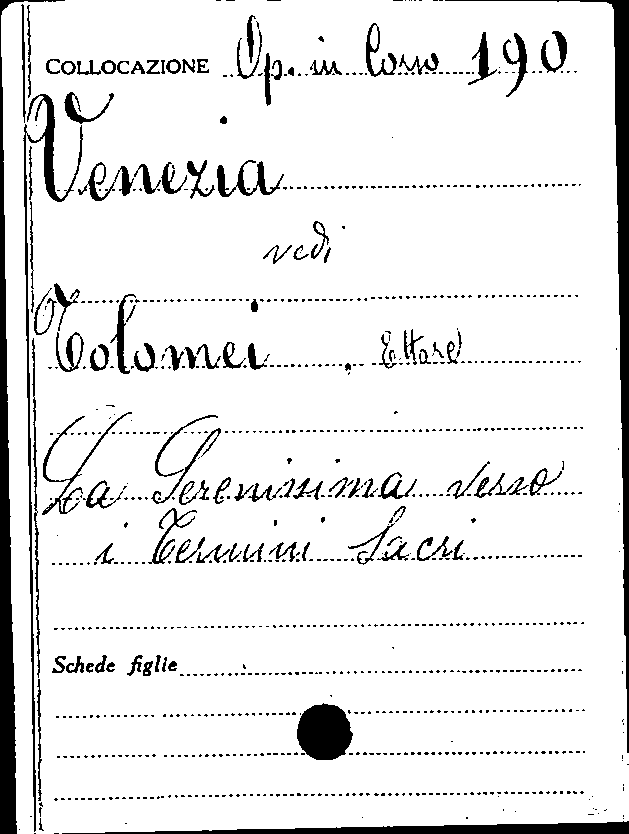 COLLOCAZIONE Op. in Corso 190
Venezia
vedi
Tolomei, Ettore
La Serenissima verso
i Termini Sacri
Schede figlie